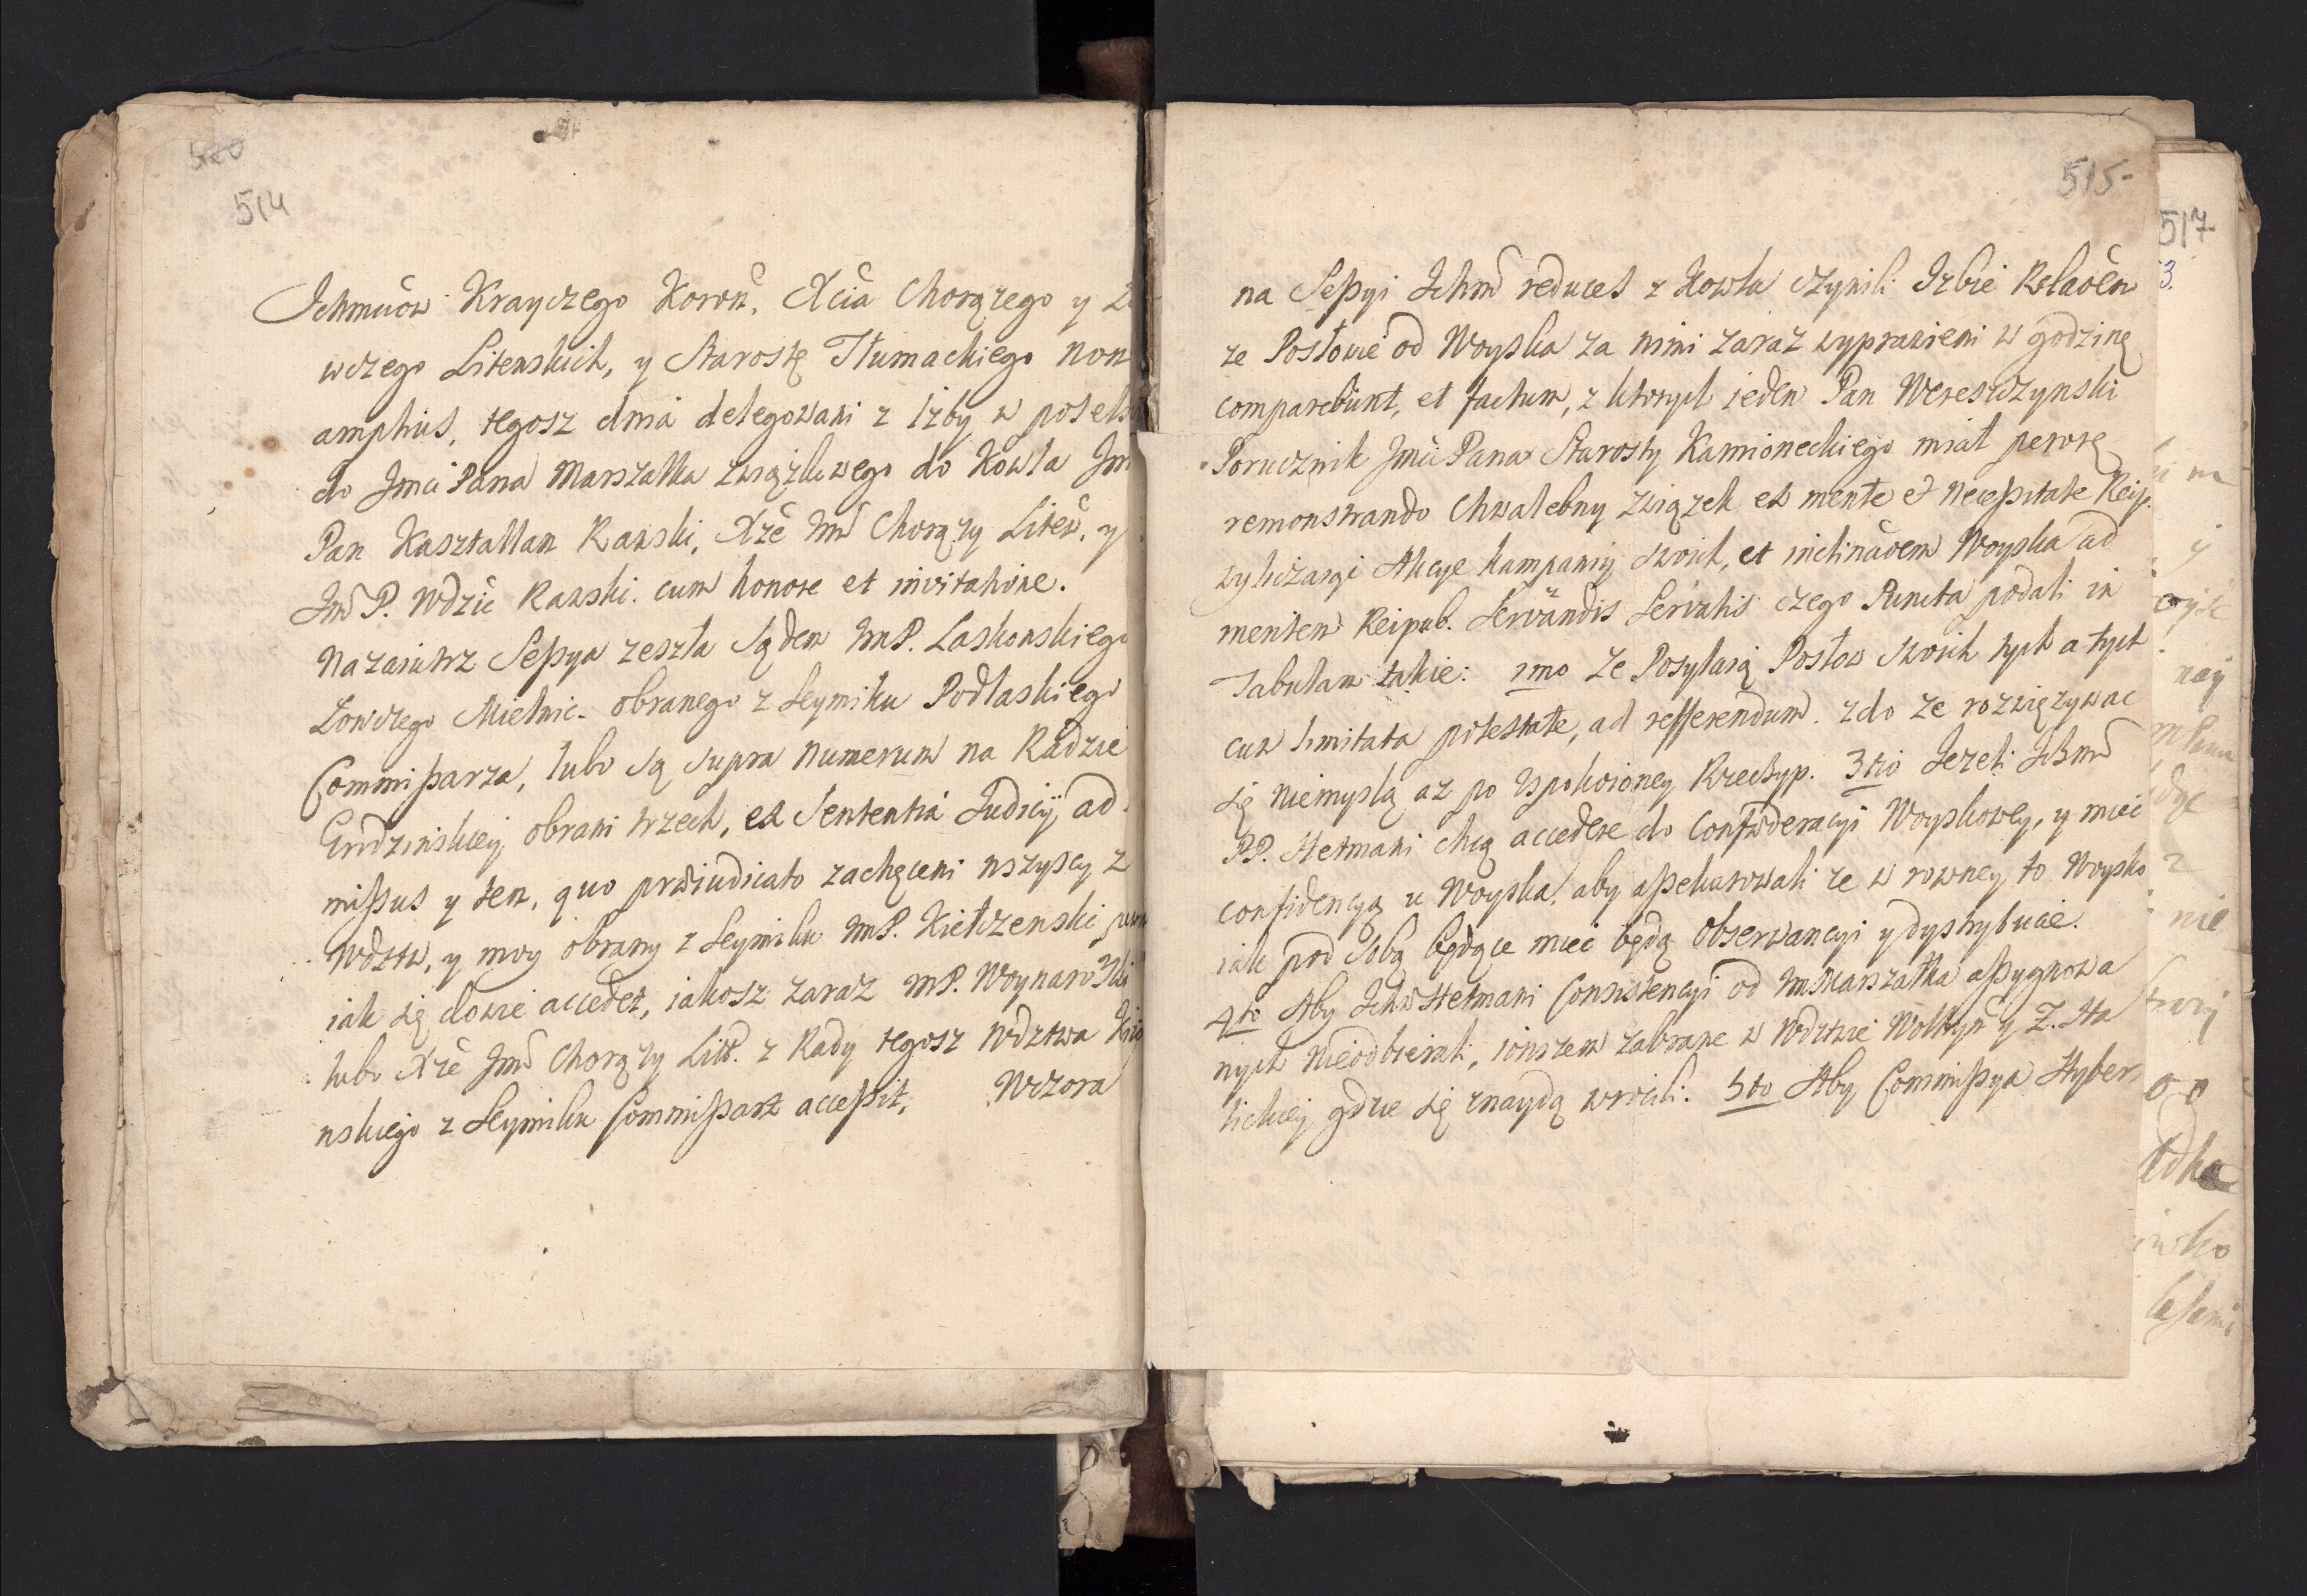 520
514
Jchmciow Krayczego Koron. Xcia Chorązego y
wczego Litewskich, y Starostę Tłumackiego non
amplius, tegosz dnia delegowani z Izby w posels
do Jmci Pana Marszałka związkowego do Kowla Jm
Pan Kasztallan Rawski, Xże Jmć Chorąży Litew, y
Jmć P. Wdzic Rawski. cum honore et invitatione.
Nazaiutrz Sessya zeszła Sądem JmP. Laskowskiego
Łowczego Mielnic. obranego z Seymiku Podlaskiego
Commissarza, lubo są supra numerum na Radzie
Grudzinskiey obrani trzech, ex Sententia Judicij ad
missus y ten, quo præiudicato zachęceni wszyscy z
Wdztw, y moy obrany z Seymiku JmP. Kiełczewski
iak się dowie accedet, iakosz zaraz JmP. Woynarowski
lubo Xże Jmć Chorąży Litt. z Rady tegosz Wdztwa
nskiego z Seymiku Commissarz accessit, Wczora
515-
na Sessyi Ichmć reduces z Kowla czynili Izbie Relacen
ze Posłowie od Woyska za nimi zaraz wyprawieni w godzinę
comparebunt, et factum, z ktorych ieden Pan Wereszczynski
Porucznik Jmci Pana Starosty Kamioneckiego miał perorę
remonstrando Chwalebny związek ex mente et necessitate Reip.
wyliczaiąc Akcye kampanij swoich, et inclinacem Woyska ad
mentem Reipub. Servandis Servatis czego Puncta podali in
Tabulam takie: 1mo Ze Posyłaią Posłow swoich tych a tych
cum limitata potestate, ad refferendum. 2do Ze rozwięzywac
się niemyslą az po Uspokoioney Rzeczyp. 3tio Jezeli Ichmć
PP. Hetmani chcą accedere do Confœderacyi Woyskowey, y miec
confidencyą u Woyska, aby assekurowali ze w rowney to Woysko
iak pod Sobą będące miec będą Obserwancyi y dystrybucie.
4to Aby Ichm Hetmani Consistencyi od JmMarszałka assygnowa
nych nieodbierali, iowszem zabrane w Wdztwie Wołhyn y Z. Ha
lickiey gdzie się znaydą wrocili. 5to Aby Commissya Hyber
517
3.
nay
nie